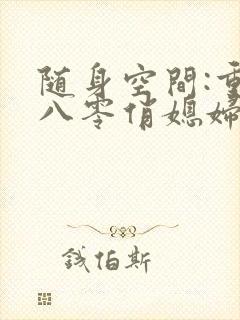 随身空間:重
八零俏媳婦
钱伯斯